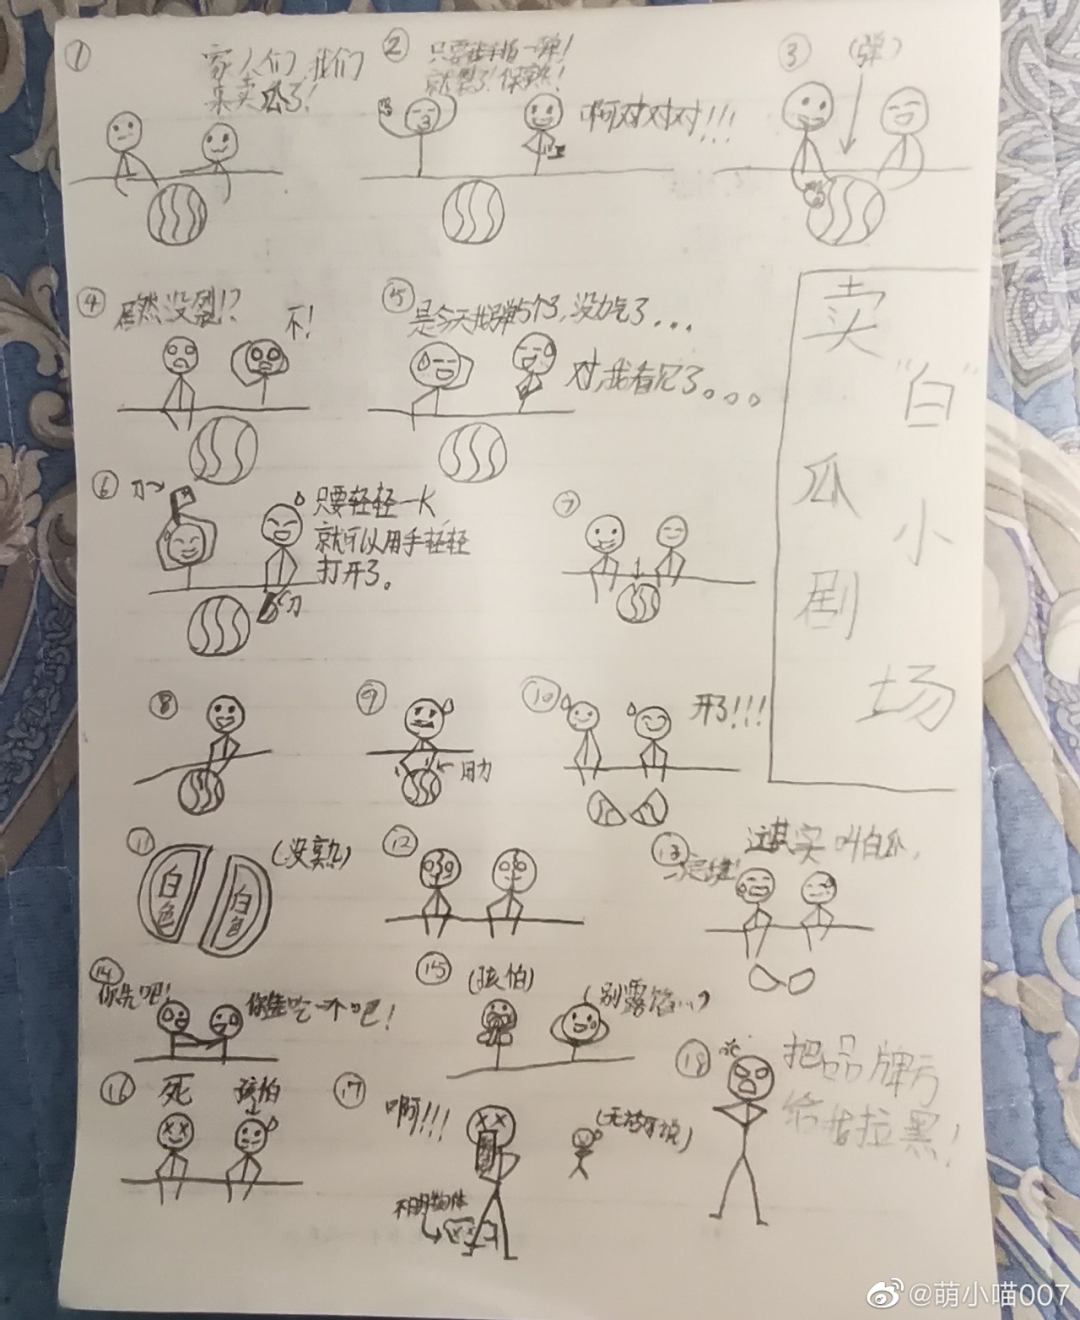 ①
家人们,我们
来卖瓜了!
②
只要使手指一弹!
就裂了!保熟!
啊对对对!!!
③
(弹)
④
居然没裂!?
不!
⑤
是今天我弹5个了,没力气了...
对,我看见了。。。
卖瓜剧
"白"小场
⑥
刀→
只要轻轻一K
就可以用手轻轻
打开了。
刀
⑦
⑧
⑨
用力
⑩
开了!!!
⑪
白色
白色
(没熟)
⑫
⑬
这其实叫白瓜,
⑭
你先吧!
你先吃一个吧!
⑮
(害怕)
(别露馅...)
⑯
死
害怕
⑰
啊!!!
不明物体
⑱
把品牌方
给我拉黑!
@萌小喵007